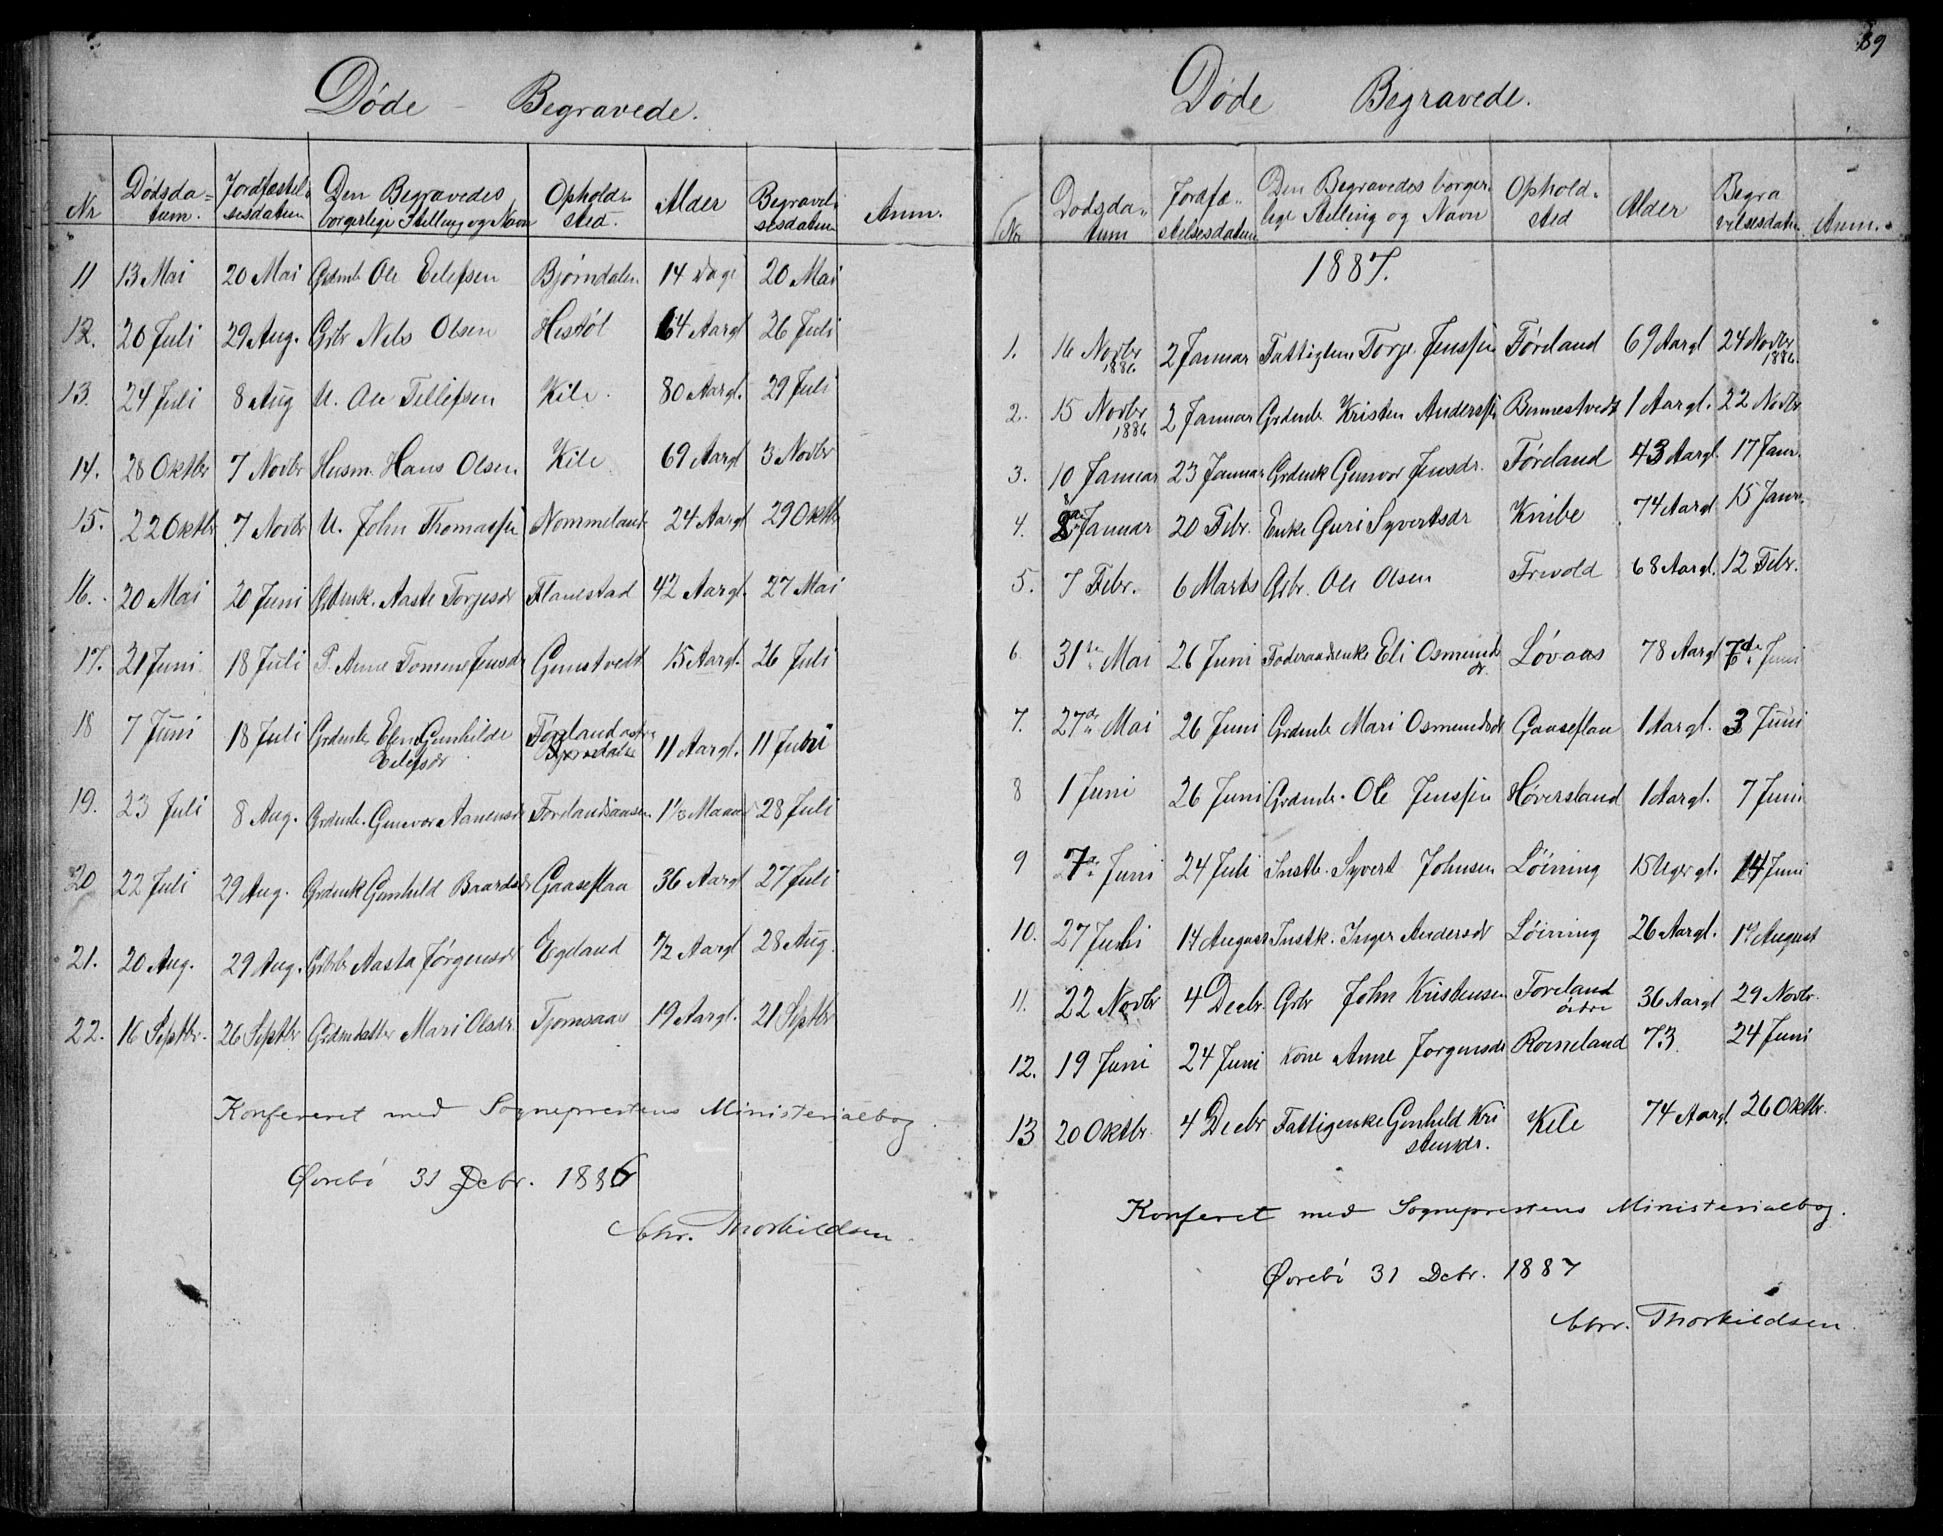 89
Døde - Begravede.
Nr | Dødsdatum. | Jordfæstelsesdatum | Den Begravedes borgerlige Stilling og Navn | Opholdssted. | Alder | Begravelsesdatum | Anm.
11 | 13 Mai | 20 Mai | Grdmb Ole Eilefsen | Bjørndalen | 14 Dage | 20 Mai
12. | 20 Juli | 29 Aug. | Grbr Nils Olsen | Hestøl | 64 Aargl | 26 Juli
13. | 24 Juli | 8 Aug | U. Ole Tellefsen | Kile. | 80 Aargl. | 29 Juli
14. | 28 Oktbr | 7 Novbr | Husm. Hans Olsen | Kile | 69 Aargl | 3 Novbr
15. | 22 Oktbr | 7 Novbr | U. John Thomassen | Nommeland | 24 Aargl | 29 Oktbr
16. | 20 Mai | 20 Juni | Grdmk. Aaste Torjesdr | Flanestad | 42 Aargl. | 27 Mai
17. | 21 Juni | 18 Juli | P. Anne Tomine Jensdr | Gunstvedt | 15 Aargl. | 26 Juli
18 | 7 Juni | 18 Juli | Grdmb Elen Gunhilde | Føreland østre | 11 Aargl. | 11 Juni
Eilefsdr | Bjørndalen
19. | 23 Juli | 8 Aug. | Grdmb. Gunvor Aanensdr | Førelandsaasen | 1½ Maaned | 28 Juli
20 | 22 Juli | 29 Aug. | Grdmk Gunhild Baardsdr | Gaaseflaa | 36 Aargl | 27 Juli
21. | 20 Aug. | 29 Aug. | Grbrb Aasta Jørgensdr | Egeland | ½ Aargl | 28 Aug.
22. | 16 Septbr. | 26 Septbr | Grdmdatter Mari Olsdr. | Tjomsaas | 19 Aargl. | 21 Septbr
Konfereret med Sogneprestens Ministerialbog.
Øvrebø 31 Debr. 1886
Chr. Thorkildsen.
Døde Begravede.
Nr | Dødsdatum | Jordfæstelsesdatum | Den Begravedes borgerlige Stilling og Navn | Opholdssted | Alder | Begravelsesdatum | Anm.
1887.
1. | 16 Novbr 1886 | 2 Januar | Fattiglem Torje Jenssen | Føreland | 69 Aargl | 24 Novbr 1886
2. | 15 Novbr 1886 | 2 Januar | Grdmb Kristen Anderssen | Bennestvedt | 1 Aargl. | 22 Novbr
3. | 10 Januar | 23 Januar | Grdmk Gunvor Jensdr. | Føreland | 43 Aargl. | 17 Janr.
4. | 8de Januar | 20 Febr. | Enke Guri Syvertsdr | Knibe | 74 Aargl | 15 Janr.
5. | 7 Febr. | 6 Marts | Grbr. Ole Olsen | Frivold | 68 Aargl. | 12 Febr.
6 | 31te Mai | 26 Juni | Føderaadsenke Eli Osmundsdr. | Løvaas | 78 Aargl | 7de Juni
7. | 27de Mai | 26 Juni | Grdmb Mari Osmundsdr | Gaaseflaa | 1 Aargl. | 3 Juni
8 | 1 Juni | 26 Juni | Grdmb. Ole Jenssen | Høversland | 1 Aargl. | 7 Juni
9 | 7de Juni | 24 Juli | Instb. Syvert Johnsen | Løining | 15 Uger gl. | 14 Juni
10. | 27 Juli | 14 August | Instk. Inger Andersdr | Løining | 26 Aargl. | 1 August
11. | 22 Novbr | 4 Decbr. | Grbr John Kristensen | Føreland østre | 36 Aargl | 29 Novbr.
12. | 19 Juni | 24 Juni | Kone Anne Jørgensdr | Romeland | 73 | 24 Juni
13 | 20 Oktbr. | 4 Decbr | Fattigenke Gunhild Kristensdr. | Kile | 74 Aargl. | 26 Oktbr.
Konferet med Sogneprestens Ministerialbog.
Øvrebø 31 Debr. 1887
Chr. Thorkildsen.